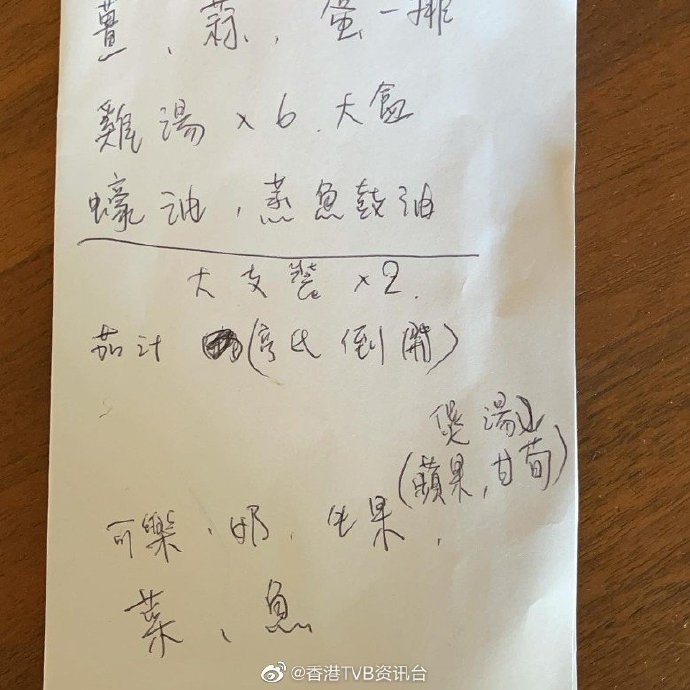 薑、蒜、蛋一排
雞湯 x 6 大盒
蠔油,蒸魚鼓油
大支裝 x2.
茄汁 (亨氏倒開)
煲湯
(蘋果,甘荀)
可樂、奶、生果,
菜、魚
@香港TVB资讯台